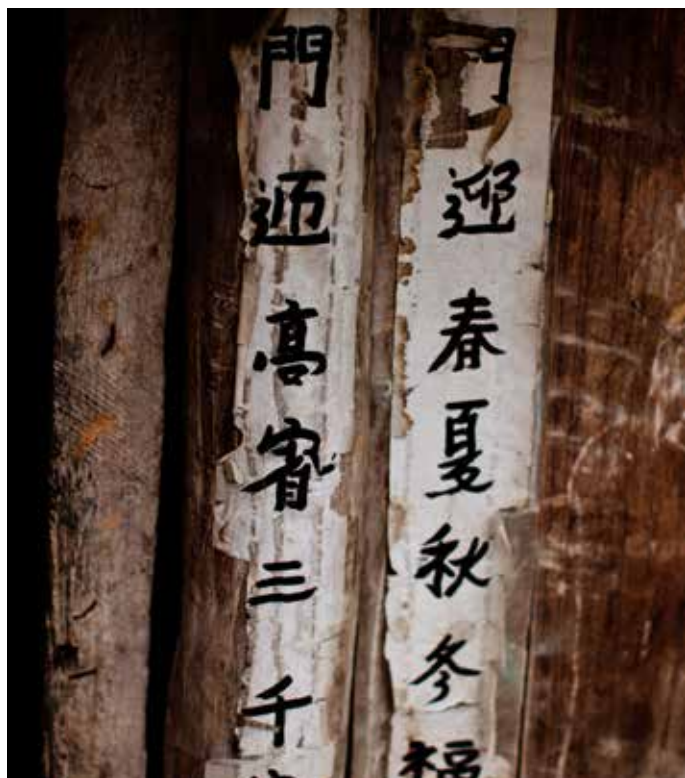 門迎春夏秋冬福
門迎髙三千